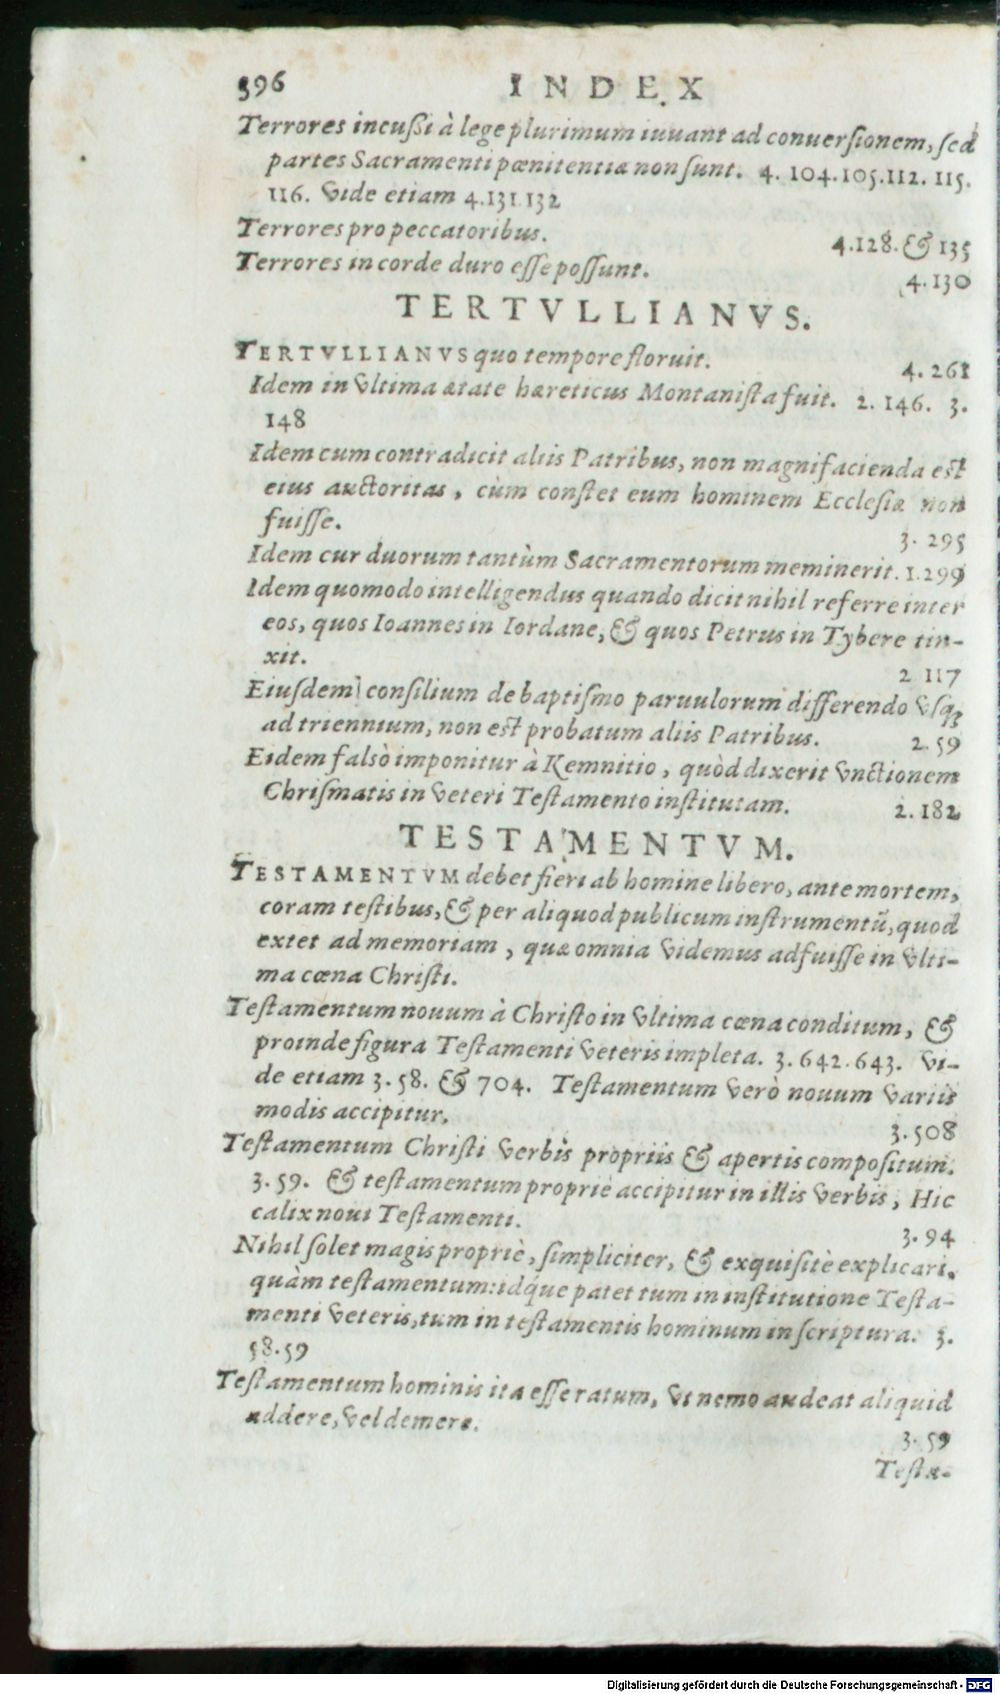 396 INDEX
Terrores incußi à lege plurimum iuuant ad conuersionem, sed
partes Sacramenti pœnitentiæ non sunt. 4. 104.105.112. 115.
116. vide etiam 4.131.132
Terrores pro peccatoribus. 4.128. & 135
Terrores in corde duro esse possunt. 4.130
TERTVLLIANVS.
TERTVLLIANVS quo tempore floruit. 4. 261
Idem in vltima ætate hæreticus Montanista fuit. 2. 146. 3.
148
Idem cum contradicit aliis Patribus, non magnifacienda est
eius auctoritas, cùm constet eum hominem Ecclesiæ non
fuisse. 3. 295
Idem cur duorum tantùm Sacramentorum meminerit. 1.299
Idem quomodo intelligendus quando dicit nihil referre inter
eos, quos Ioannes in Iordane, & quos Petrus in Tybere tin-
xit. 2 117
Eiusdem consilium de baptismo paruulorum differendo vsq;
ad triennium, non est probatum aliis Patribus. 2. 59
Eidem falsò imponitur à Kemnitio, quòd dixerit vnctionem
Chrismatis in veteri Testamento institutam. 2. 182
TESTAMENTVM.
TESTAMENTVM debet fieri ab homine libero, ante mortem,
coram testibus, & per aliquod publicum instrumentū, quod
extet ad memoriam, quæ omnia videmus adfuisse in vlti-
ma cœna Christi.
Testamentum nouum à Christo in vltima cœna conditum, &
proinde figura Testamenti veteris impleta. 3. 642.643. Vi-
de etiam 3. 58. & 704. Testamentum verò nouum variis
modis accipitur. 3. 508
Testamentum Christi verbis propriis & apertis compositum.
3. 59. & testamentum propriè accipitur in illis verbis, Hic
calix noui Testamenti. 3. 94
Nihil solet magis propriè, simpliciter, & exquisitè explicari,
quàm testamentum: idque patet tum in institutione Testa-
menti veteris, tum in testamentis hominum in scriptura. 3.
58.59
Testamentum hominis ita esse ratum, vt nemo audeat aliquid
addere, vel demere. 3. 59
Testa-
Digitalisierung gefördert durch die Deutsche Forschungsgemeinschaft - DFG